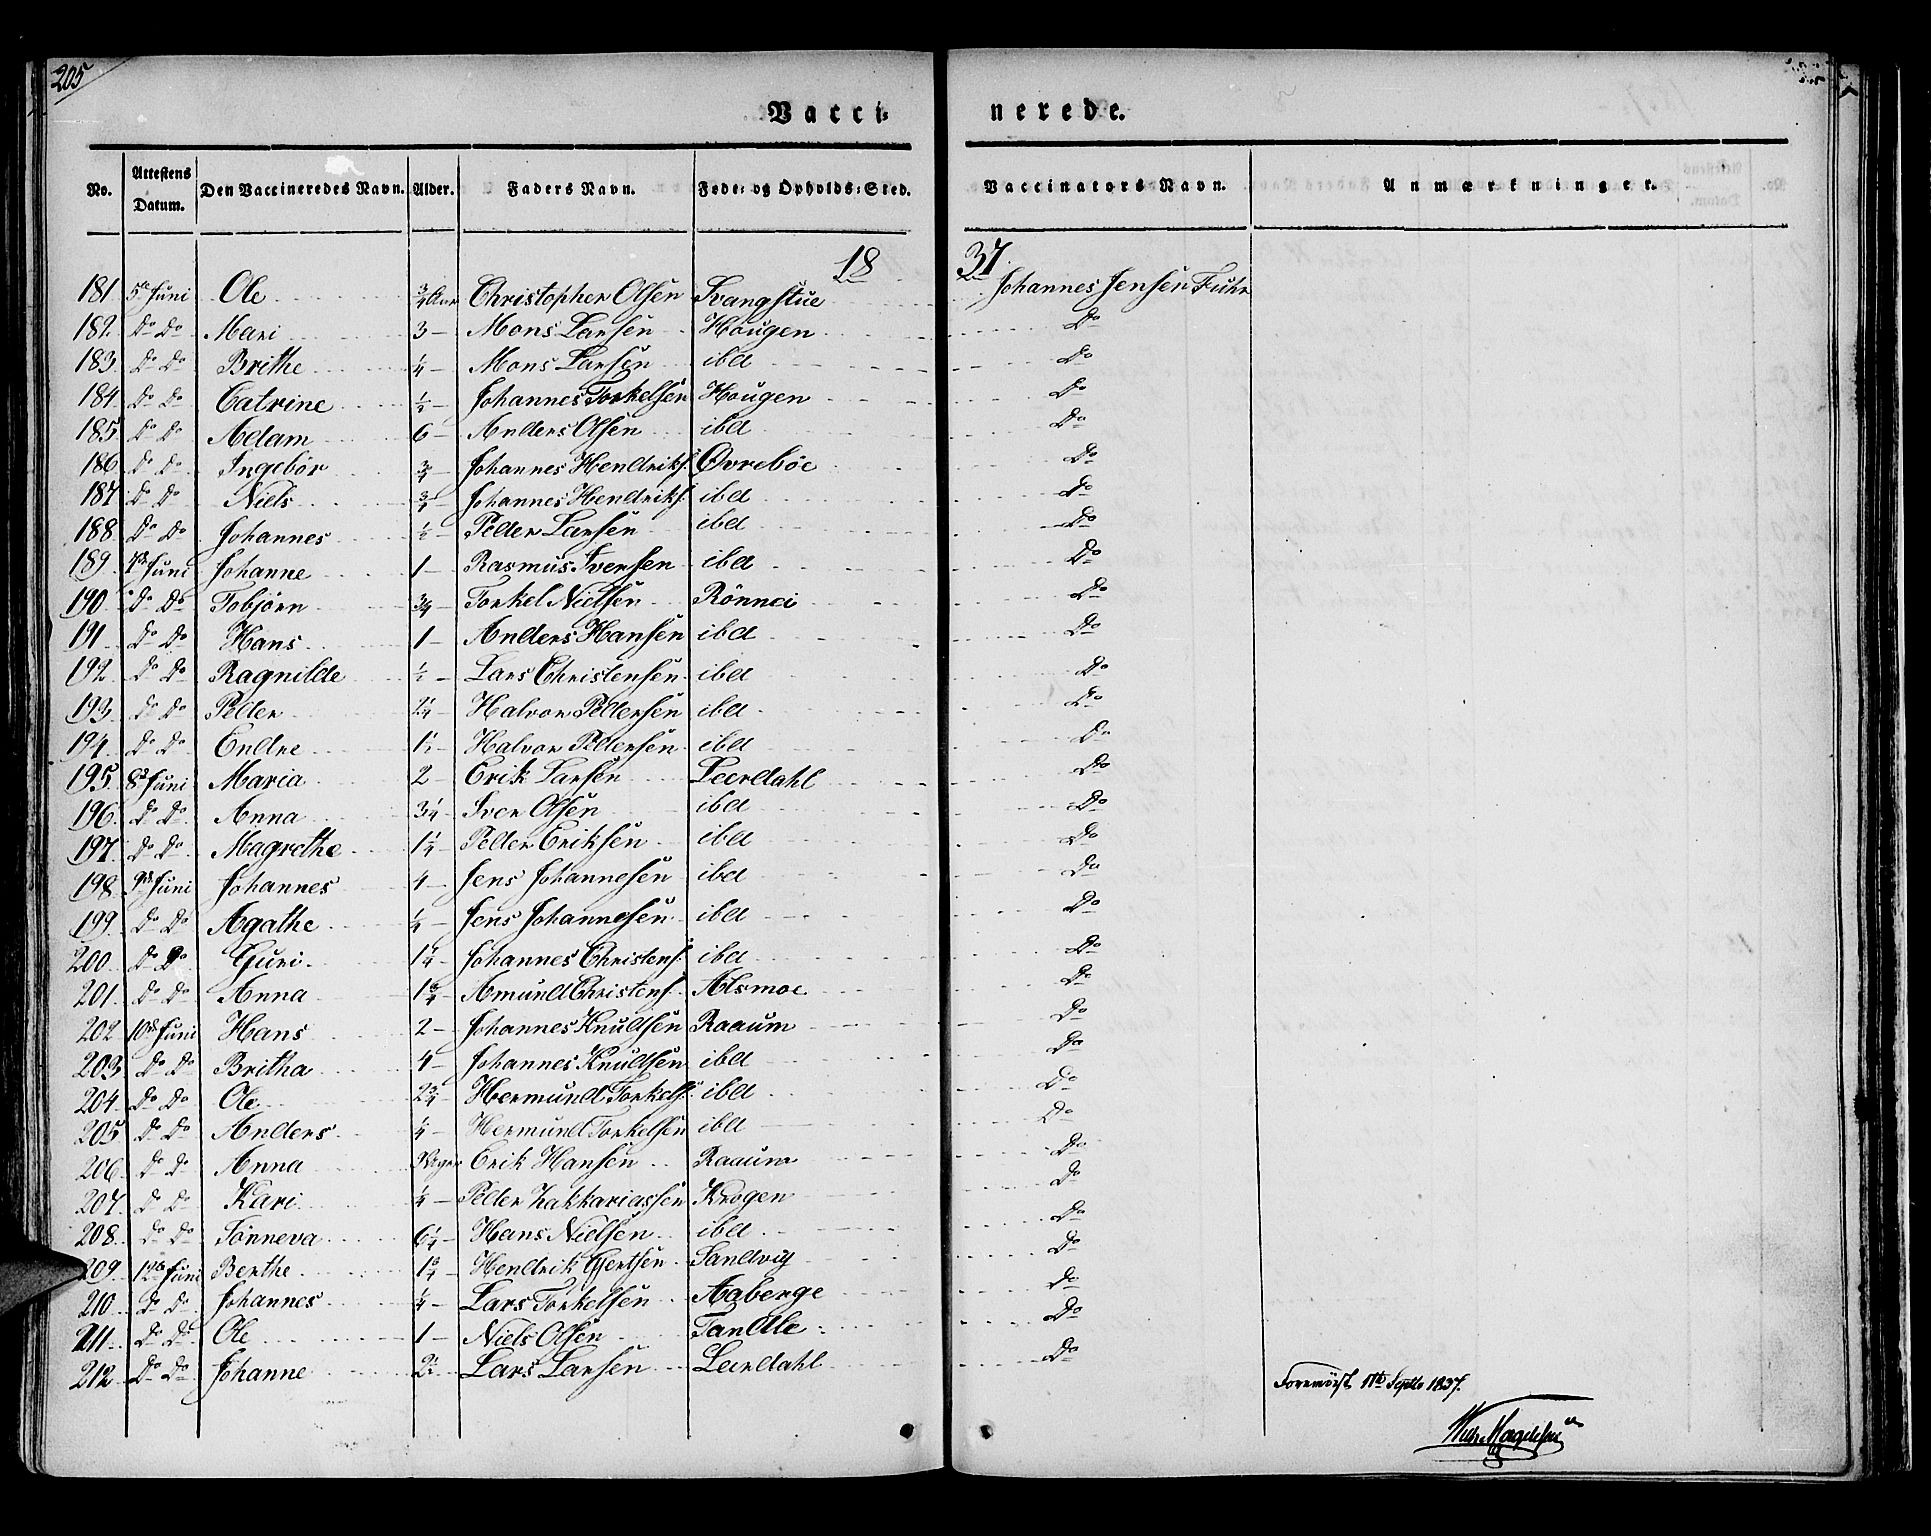 205
Vacci= nerede.
No. Attestens Datum. Den Vaccineredes Navn. Alder. Faders Navn. Føde= og Opholds=Sted. Vaccinators Navn. Anmærkninger.
18 37.
181 5te Juni Ole ¾ Aar Christopher Olsen Svangstue Johannes Jensen Fuhr
182. Do Do Mari 3 — Mons Larsen Hougen Do
183. Do Do Brithe ¼ — Mons Larsen ibd Do
184. Do Do Catrine ½ — Johannes Torkelsen Hougen Do
185. Do Do Adam 6 — Anders Olsen ibd Do
186. Do Do Ingebör ¾ — Johannes Hendriks. Øvreböe Do
187 Do Do Niels ¾ — Johannes Hendriks. ibd Do
188. Do Do Johannes ½ — Peder Larsen ibd Do
189. 7de Juni Johanne 1 — Rasmus Iversen ibd Do
190. Do Do Tobjörn ¾ — Torkel Nielsen Rönnei Do
191 Do Do Hans 1 — Anders Hansen ibd Do
192. Do Do Ragnilde ½ — Lars Christensen ibd Do
193. Do Do Peder 2¼ — Halvor Pedersen ibd Do
194. Do Do Endre 1½ — Halvor Pedersen ibd Do
195. 8de Juni Maria 2 — Erik Larsen Leerdahl Do
196. Do Do Anna 3¼ — Iver Olsen ibd Do
197. Do Do Magrethe 1¼ — Peder Eriksen ibd Do
198. 9de Juni Johannes 4 — Jens Johannesen ibd Do
199. Do Do Agathe ¼ — Jens Johannesen ibd Do
200. Do Do Guri 1¼ Johannes Christens. ibd Do
201. Do Do Anna 1¾ — Amund Christens. Alsmoe Do
202 10de Juni Hans 2 — Johannes Knudsen Raaum Do
203 Do Do Britha 4 — Johannes Knudsen ibd Do
204. Do Do Ole 2¾ — Hermund Torkels. ibd Do
205 Do Do Anders ¼ — Hermund Torkelsen ibd Do
206. Do Do Anna Erik Hansen Raaum Do
207. Do Do Kari ¼ — Peder Zakkariassen Krogen Do
208. Do Do Tönneva 6¼ — Hans Nielsen ibd Do
209. 12te Juni Berthe 1¾ — Hendrik Gjertsen Sandvig Do
210. Do Do Johannes ¼ — Lars Torkelsen Aaberge Do
211. Do Do Ole 1 — Niels Olsen Tandle Do
212 Do Do Johanne 2½ — Lars Larsen Leerdahl Do
1837.